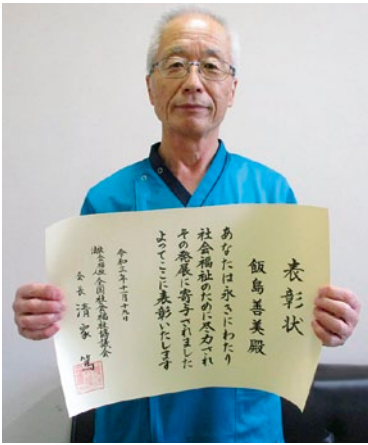 表彰状
飯島善美殿
あなたは永きにわたり
社会福祉のために尽力され
その発展に寄与されました
よってここに表彰いたします
令和三年十一月十九日
社会福祉法人全国社会福祉協議会
会長 清家篤